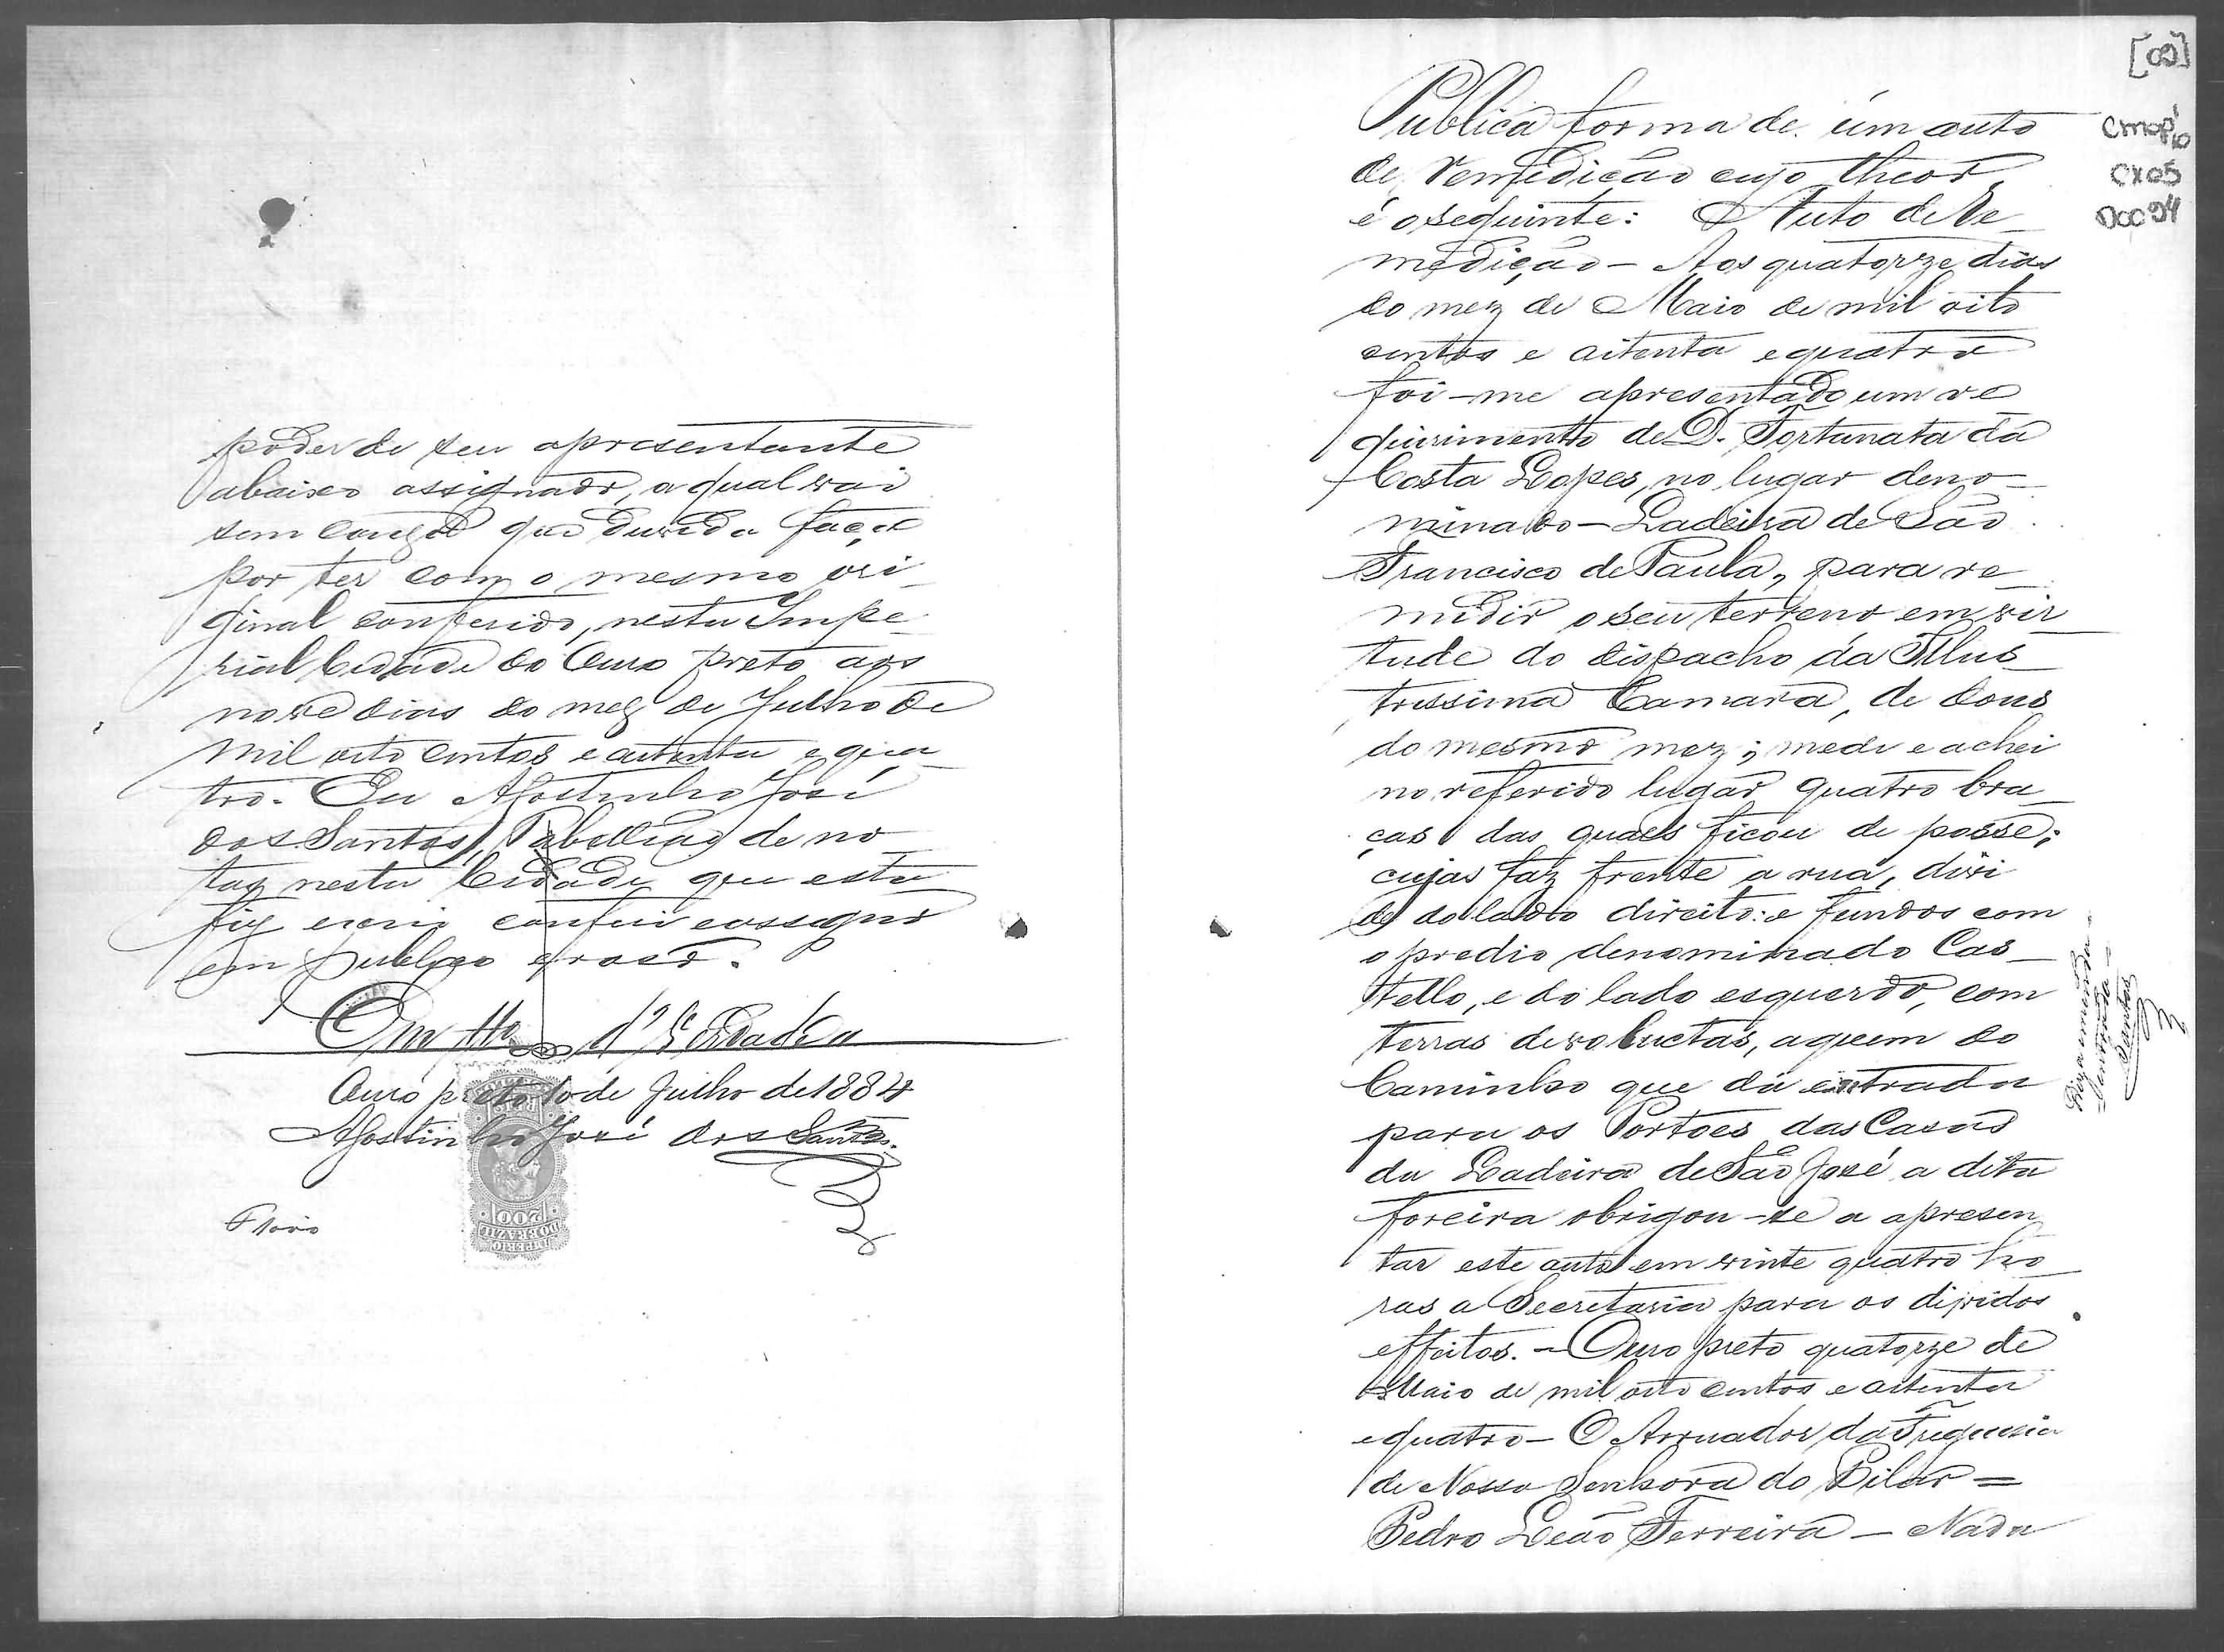 poder de seu apresentante
abaixo assignado, a qual vai
sem couza que duvida faça
por ter com o mesmo ori-
ginal conferido, nesta Impe-
rial Cidade do Ouro preto aos
nove dias do mez de Julho de
mil oito centos e oitenta e qua-
tro. Eu Agostinho José
dos Santos, Tabellião de no-
tas nesta Cidade que esta
fiz escrevi conferi e assigno
em publico e raso.
Em tto d'Verdade
Ouro preto 10 de Julho de 1884
Agostinho José dos Santos.
200
IMPERIO DO BRAZIL
[09]
CMOP
CX05
DOC 94
Publica forma de um auto
de remedição cujo theor
é o seguinte: Auto de Re-
medição - Aos quatorze dias
do mez de Maio de mil oito
centos e oitenta e quatro
foi-me apresentado um re
quirimento de D. Fortunata da
Costa Lopes, no lugar deno-
minado - Ladeira de São
Francisco de Paula, para re-
midir o seu terreno em vir
tude do dispacho da Illus-
trissima Camara, de dous
do mesmo mez; medi e achei
no referido lugar quatro bra-
ças das quaes ficou de posse;
cujas faz frente a rua, divi
de do lado direito: e fundos com
o predio denominado Cas-
tello, e do lado esquerdo, com
terras devoluctas, aquem do
Caminho que dá entrada
para os Portões das Casas
da Ladeira de São José a dita
foreira obrigou-se a apresen
tar este auto em vinte quatro ho-
ras a Secretaria para os divídos
effeitos. - Ouro preto quatorze de
Maio de mil oito centos e oitenta
e quatro - O Arruador da Freguesia
de Nossa Senhora do Pilar =
Pedro Leão Ferreira - Nada
Diz a emenda -
= entrada =
Santos